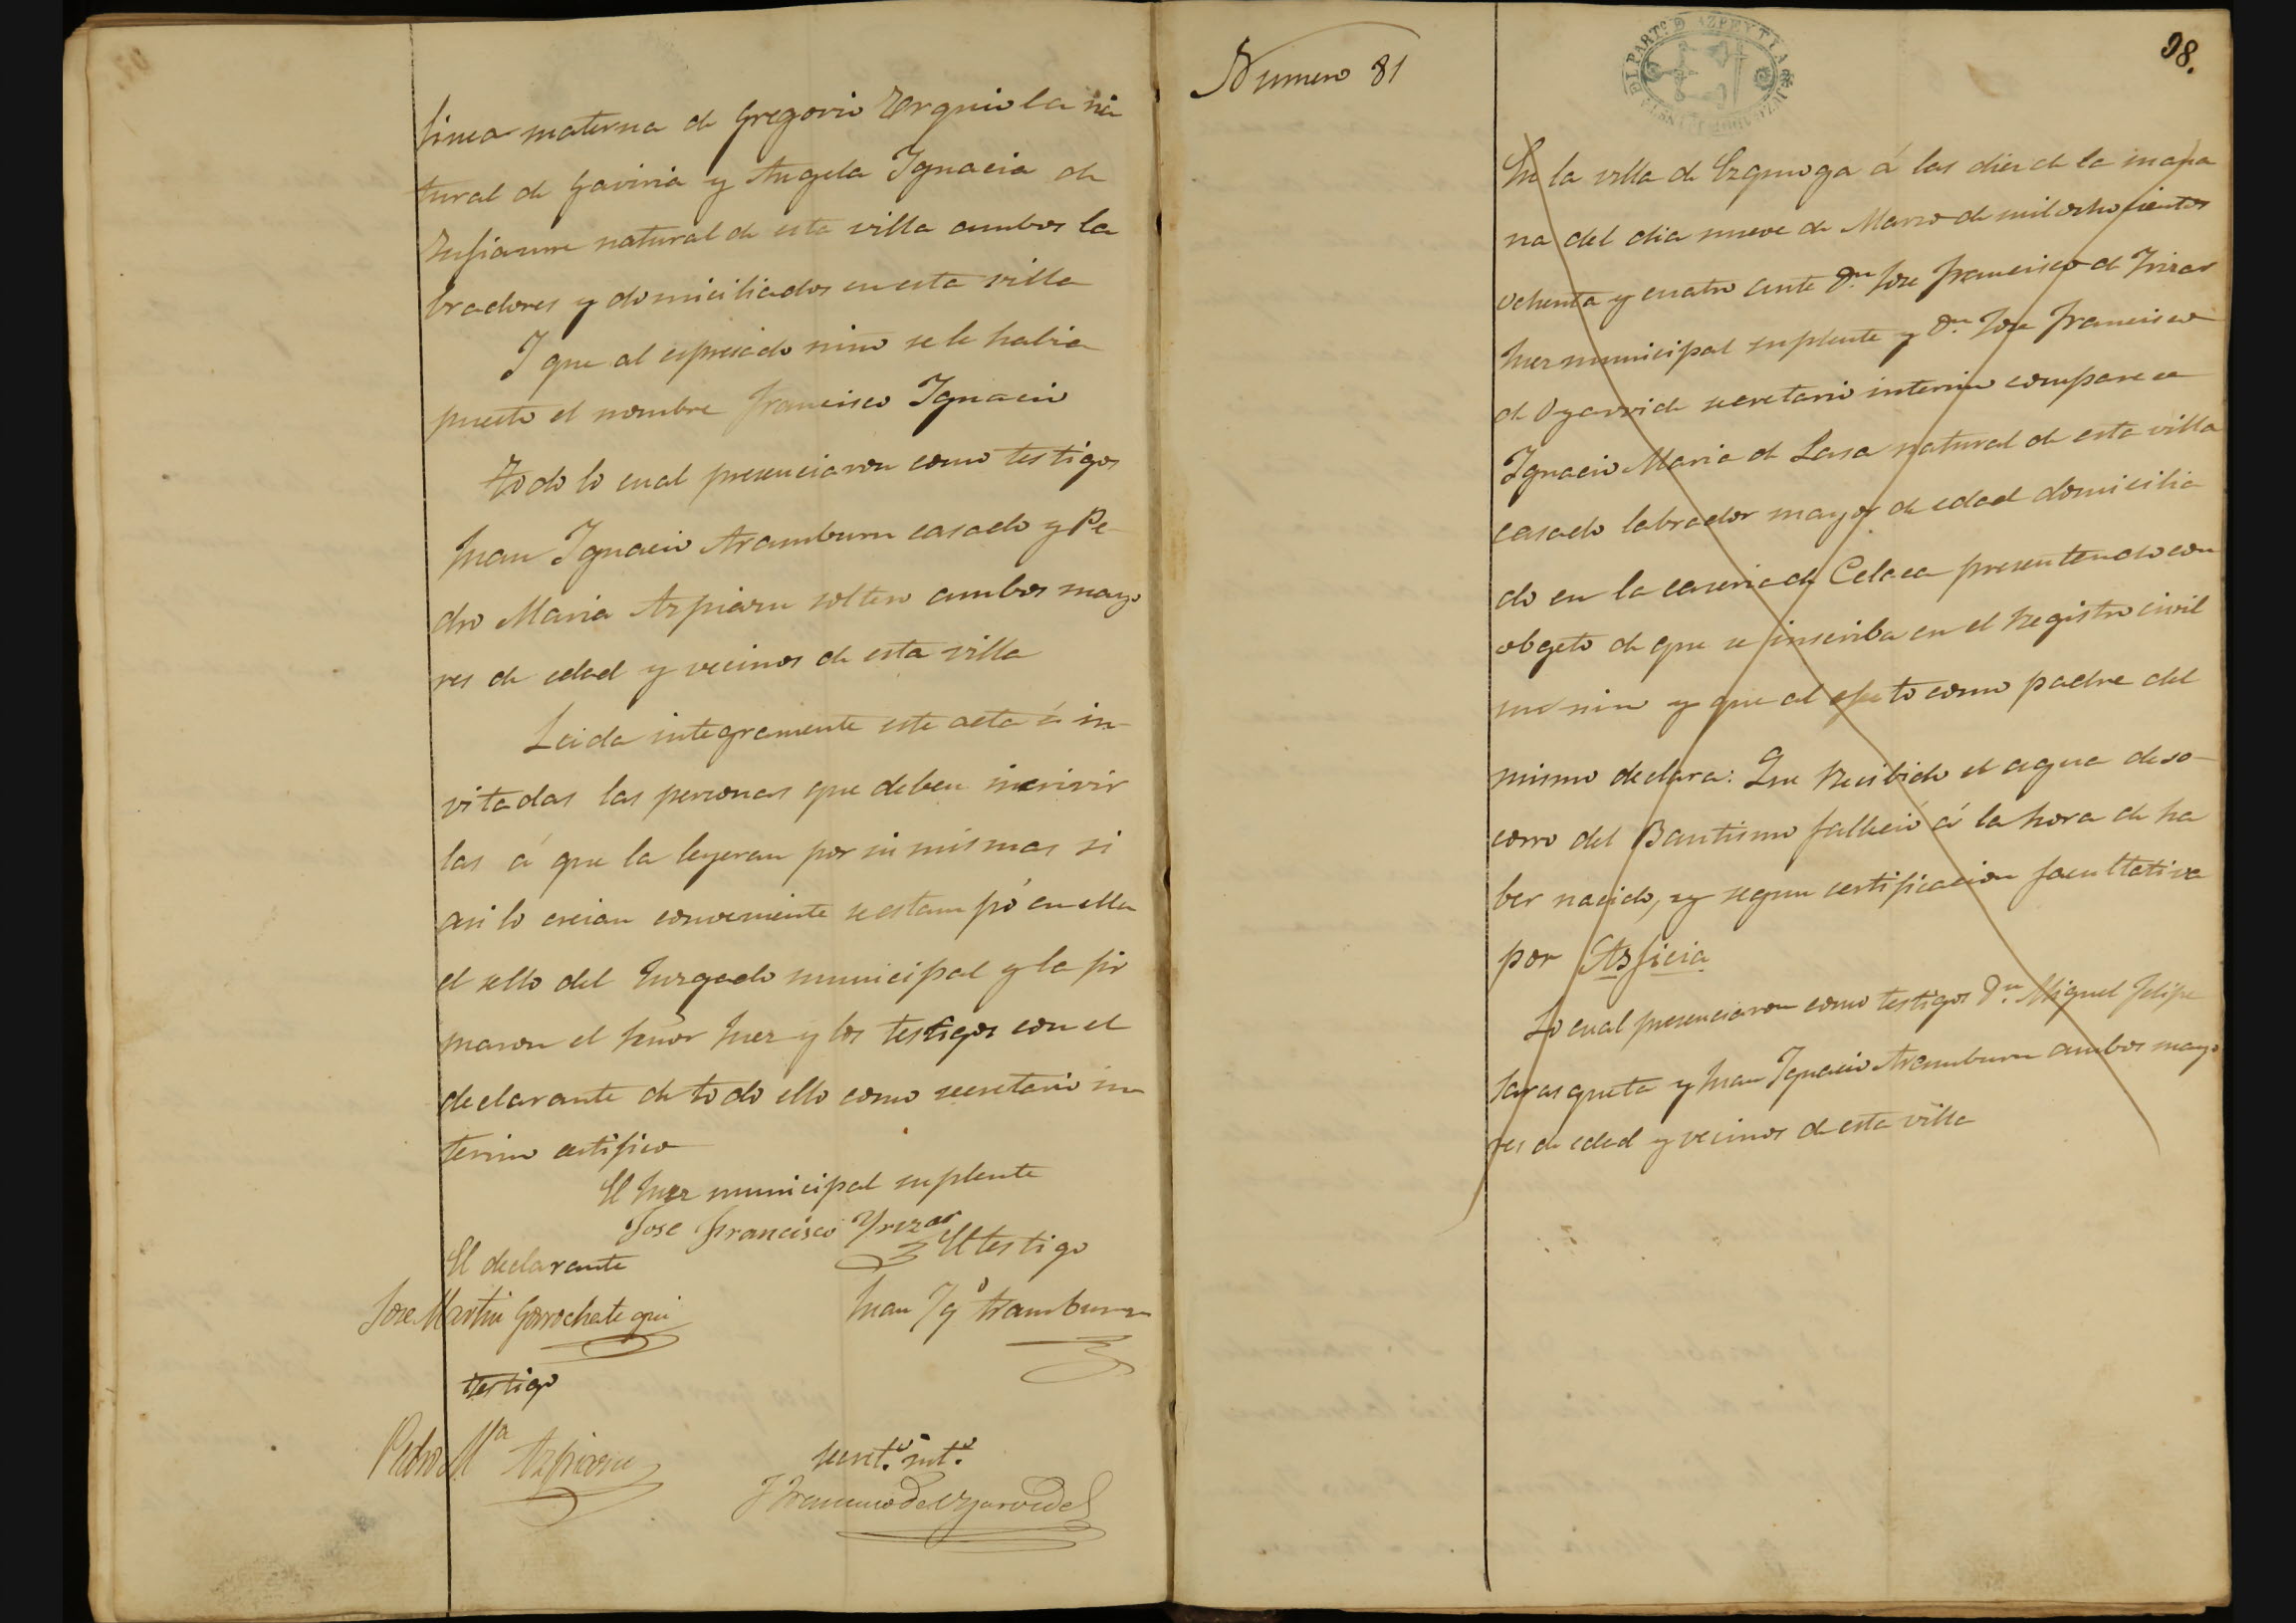 linea materna de Gregorio Esquiola na
tural de Gaviria y Angela Ignacia de
natural de esta villa ambos la
bradores y domiciliados en esta villa
I que al espresado nino se le habia
puesto el nombre Francisco Ignacio
Todo lo cual presenciaron como testigos
Juan Ignacio Aramburu casado y Pe-
dro Maria Azpiazu soltero ambos mayo
res de edad y vecinos de esta villa
Leida integramente este acta é in-
vitadas las personas que deben suscrivir
las á que la leyeran por si mismas si
asi lo creian conveniente se estampó en ella
el sello del Juzgado municipal y la fir
maron el Señor Juez y los testigos con el
declarante de todo ello como secretario in
terino certifico
El Juez municipal suplente
Jose Francisco Yrizar
El declarante
El testigo
Jose Martin Gorrochategui
Juan Ygº Aramburu
testigo
Pedro Mª Azpiazu
Secretº intº
J Francisco de Oyarvide
Numero 81
98.
PARTº D AZPEYTIA
En la villa de Ezquioga á las diez de la maña
na del dia nueve de Marzo de mil ochocientos
ochenta y cuatro ante Dn Jose Francisco de Irizar
Juez municipal suplente y Dn Jose Francisco
de Oyarvide secretario interino comparece
Ignacio Maria de Lasa natural de esta villa
casado labrador mayor de edad domicilia
do en la caseria de Celaea presentendo con
obgeto de que se inscriba en el Registro civil
un nino y que al efeto como padre del
mismo declara: Que Recibido el agua de so-
corro del Bautismo fallició á la hora de ha
ber nacido, y segun certificacion facultativa
por Asficia
Lo cual presenciaron como testigos Dn Miguel Felipe
Sarasqueta y Juan Ignacio Aramburu ambos mayo
res de edad y vecinos de esta villa